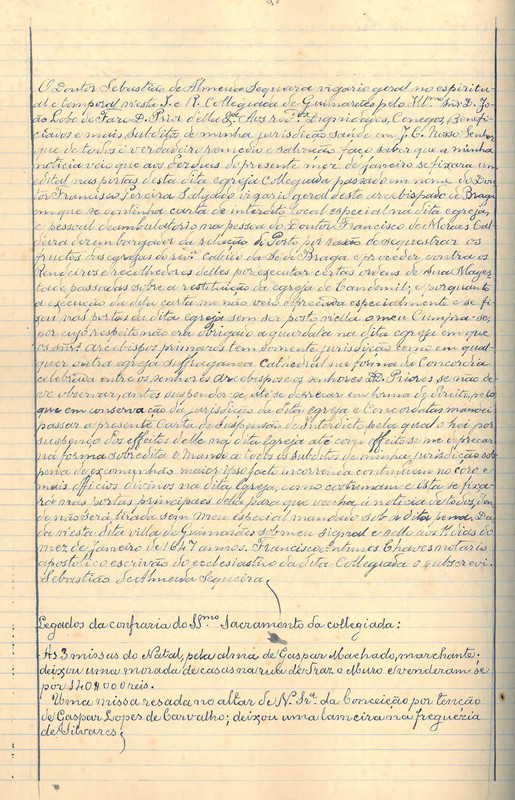 O Doutor Sebastião de Almeida Sequeira vigario geral no espiritu-
al e temporal nesta I. e R. Collegiada de Guimarães pelo Ill.mo Snr. D. Jo-
ão Lobo de Faro D. Prior della &.ª Aos rev.dos Dignidades, Conegos, Benefi-
ciados e mais subditos de minha jurisdicção saude em J. C. Nosso Senhor
que de todos é verdadeiro remedio e salvação faço saber que a minha
noticia veio que aos do presente mez de janeiro se fixara um
edital nas portas desta dita egreja Collegiada passado em nome do Dou-
tor Francisco Pereira Salgado vigario geral deste arcebispado de Braga
em que se continha carta de interdito local especial na dita egreja,
e pessoal deambulatorio na pessoa do Doutor Francisco de Moraes Cal-
deira dezembargador da relação do Porto por rasão de sequestrar os
fructos das egrejas do rev.mo Cabido da Sé de Braga e proceder contra os
Rendeiros e recolhedores delles por executar certas ordens de Sua Mages-
tade, passadas sobre a restituição da egreja de Candemil; e porquanto
a execução da dita carta me não veio deprecada especialmente e se fi-
xou nas portas da dita egreja sem ser posto nella o meu Cumpra-se,
por cujo respeito não era obrigado a guardala na dita egreja em que
os snr.es Arcebispos primazes tem somente jurisdicção como em qual-
quer outra egreja suffraganea Cathedral na forma da Concordia
celebrada entre os senhores Arcebispos e os senhores DD. Priores se não de-
ve observar, antes suspender-se, até se deprecar em forma de direito, pelo
que em conservação da jurisdicção da dita egreja e Concordatas mandei
passar a presente Carta de Suspensão de Interdicto pela qual o hei por
suspenso dos effeitos delle na dita Egreja até com effeito se me deprecar
na forma sobredita e Mando a todos os subditos de minha jurisdicção sob
pena de excomunhão maior ipso facto incorrenda continuem no coro e
mais officios divinos na dita Egreja, como costumam e esta se fixa-
rá nas portas principaes della para que venha á noticia de todos, don-
de não será tirada sem meu especial mandado sob a dita pena. Da-
da nesta dita villa de Guimarães sob meu signal e sello aos dias do
mez de janeiro de 1647 annos. Francisco Antunes Chaves notario
apostolico escrivão do ecclesiastico da dita Collegiada o subscrevi.
Sebastião de Almeida Sequeira;
Legados da confraria do SS.mo Sacramento da collegiada:
As 3 missas do Natal, pela alma de Gaspar Machado, marchante;
deixou uma morada de casas na rua de Traz o Muro e venderam-se
por 140$000 reis.
Uma missa resada no altar de N.ª Sr.ª da Conceição por tenção
de Gaspar Lopes de Carvalho; deixou uma lameira na freguezia
de Silvares;